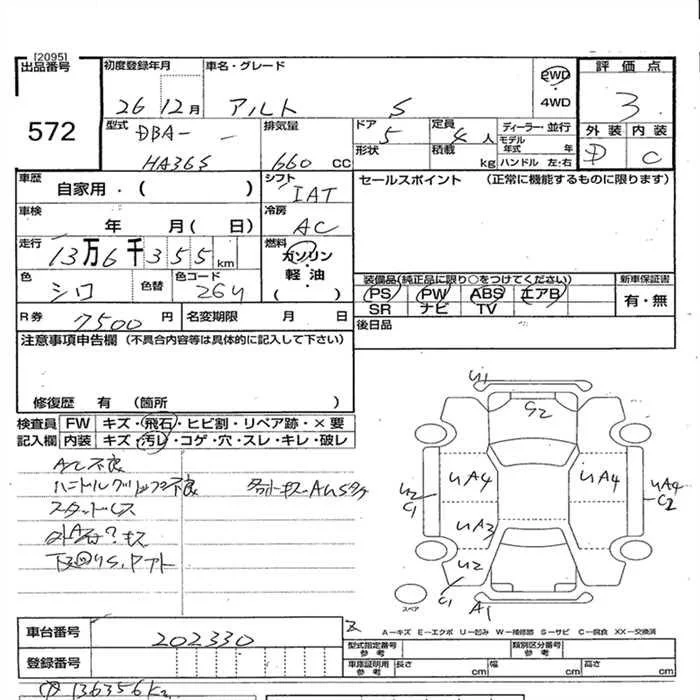 [2095]
出品番号 初度登録年月 車名・グレード 評価点
572 26 12月 アルト S 2WD 4WD 3
型式 DBA- HA36S 排気量 660 cc ドア 5 定員 4 人 ディーラー・並行 外装 内装
形状 積載 kg モデル年式 年 ハンドル 左・右 D C
車歴 自家用・( ) シフト IAT セールスポイント (正常に機能するものに限ります)
車検 年 月( 日) 冷房 AC
走行 13万6千355 km 燃料 ガソリン 軽・油 ( )
色 シロ 色替 色コード 26U
装備品(純正品に限り○をつけてください) 新車保証書
PS PW ABS エアB 有・無
SR ナビ TV
R券 7500 円 名変期限 月 日 後日品
注意事項申告欄 (不具合内容等は具体的に記入して下さい)
修復歴 有 (箇所
検査員 FW キズ・飛石・ヒビ割・リペア跡・×要
記入欄 内装 キズ・汚レ・コゲ・穴・スレ・キレ・破レ
A/C不良
スタッドレス
U1
G2
UA4 UA4
U2 C1 UA4 C2
UA3
U2
C1 A1
スペア
A―キズ E―エクボ U―凹み W―補修跡 S―サビ C―腐食 XX―交換済
車台番号 202330
型式指定番号 参考 類別区分番号 参考
登録番号 車庫証明用 参考 長さ cm 幅 cm 高さ cm
136356km